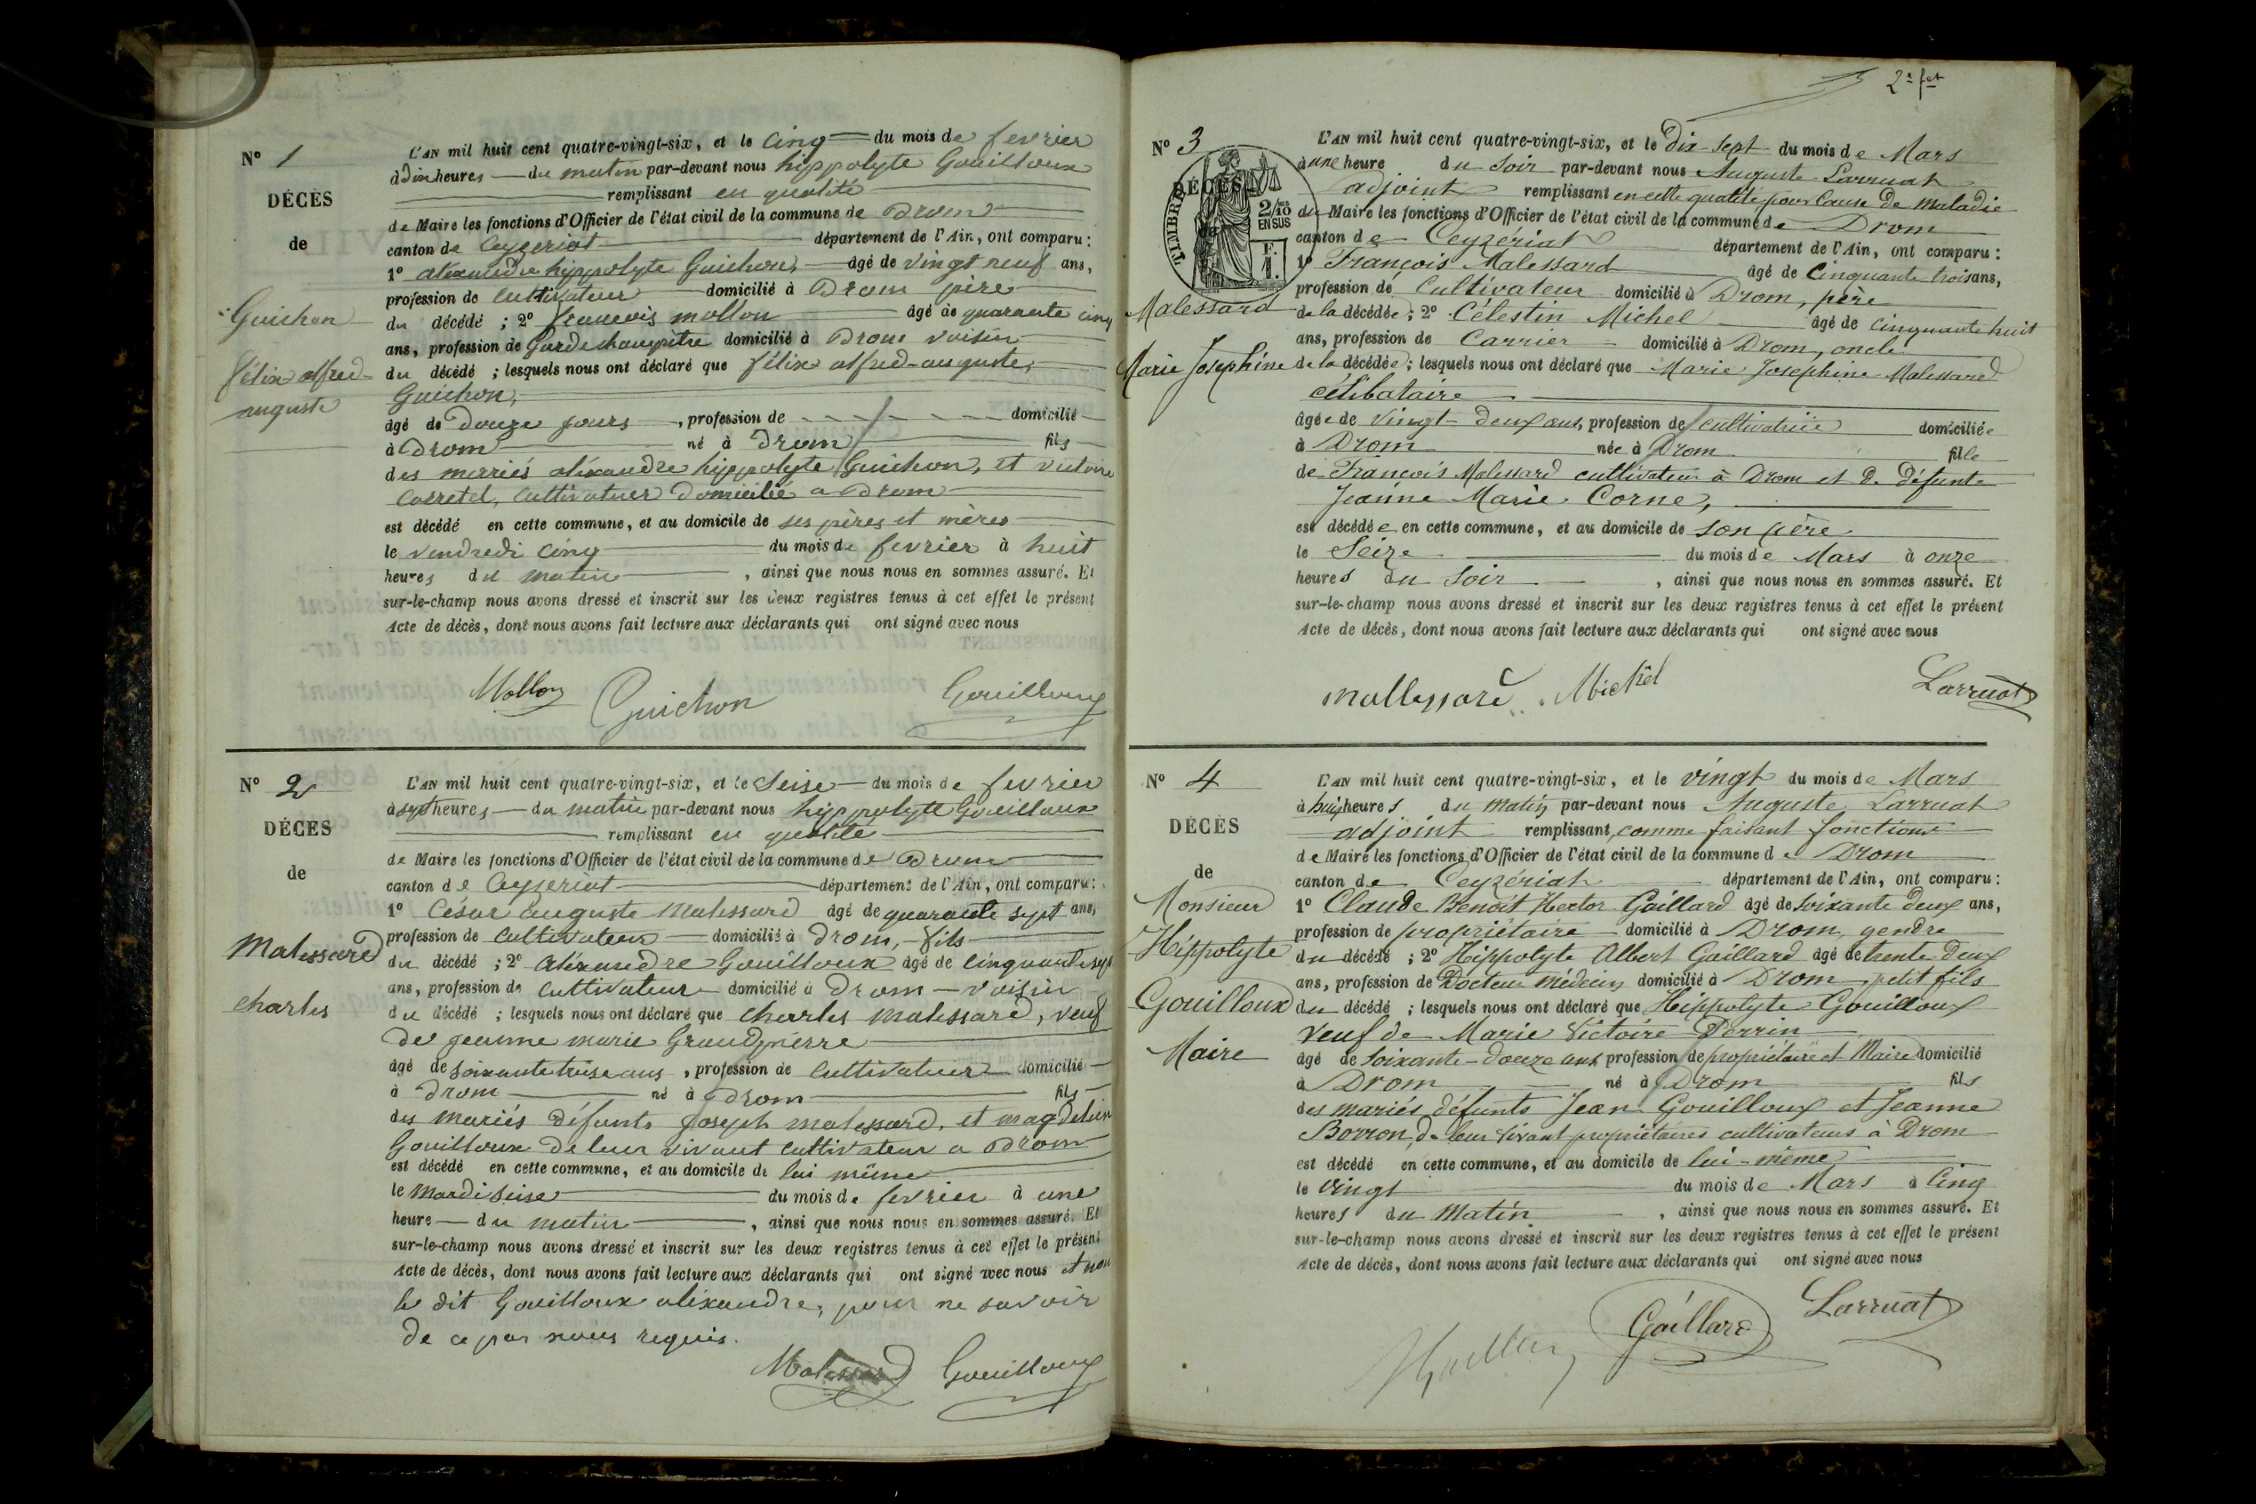 N° 1
DÉCÈS
de
Guichon
félix alfred
auguste
L'AN mil huit cent quatre-vingt-six, et le cinq du mois de fevrier
à dix heures du matin par-devant nous hippolyte Gouilloux
remplissant en qualité
de Maire les fonctions d'Officier de l'état civil de la commune de Drom
canton de Ceyzeriat département de l'Ain, ont comparu :
1° alexandre hippolyte Guichon, âgé de vingt neuf ans,
profession de cultivateur domicilié à Drom père
du décédé ; 2° francois mollon âgé de quarante cinq
ans, profession de Garde champètre domicilié à Drom voisin
du décédé ; lesquels nous ont déclaré que félix alfred-auguste,
Guichon,
âgé de douze jours, profession de domicilié
à Drom né à Drom fils
des mariés aléxandre hippolyte Guichon, et victoire
cultivateur domicilié a Drom
est décédé en cette commune, et au domicile de ses pères et mères
le vendredi cinq du mois de fevrier à huit
heures du matin, ainsi que nous nous en sommes assuré. Et
sur-le-champ nous avons dressé et inscrit sur les deux registres tenus à cet effet le présent
Acte de décès, dont nous avons fait lecture aux déclarants qui ont signé avec nous
Mollon Guichon Gouilloux
N° 2
DÉCÈS
de
Malessard
charles
L'AN mil huit cent quatre-vingt-six, et le Seise du mois de fevrier
à sept heures du matin par-devant nous hippolyte Gouilloux
remplissant en qualité
de Maire les fonctions d'Officier de l'état civil de la commune de Drom
canton de Ceyzeriat département de l'Ain, ont comparu :
1° César auguste Malessard âgé de quarante sept ans,
profession de cultivateur domicilié à Drom, fils
du décédé ; 2° aléxandre Gouilloux âgé de cinquante sept
ans, profession de cultivateur domicilié à Drom voisin
du décédé ; lesquels nous ont déclaré que charles malessard, veuf
de jeanne marie Grandpierre
âgé de soixante treise ans, profession de cultivateur domicilié
à Drom né à Drom fils
des mariés défunts joseph malessard, et magdeleine
Gouilloux de leur vivant cultivateur a Drom
est décédé en cette commune, et au domicile de lui même
le mardi seise du mois de fevrier à une
heure du matin, ainsi que nous nous en sommes assuré. Et
sur-le-champ nous avons dressé et inscrit sur les deux registres tenus à cet effet le présent
Acte de décès, dont nous avons fait lecture aux déclarants qui ont signé avec nous et non
le dit Gouilloux aléxandre, pour ne savoir
de ce par nous requis.
Malessard Gouilloux
2e fet
N° 3
TIMBRE
DÉCÈS
2/10
EN SUS
F.
1.
Malessard
Marie Josephine
L'AN mil huit cent quatre-vingt-six, et le Dix-sept du mois de Mars
à une heure du Soir par-devant nous Auguste Larruat
adjoint remplissant en cette qualité pour cause de maladie
du Maire les fonctions d'Officier de l'état civil de la commune de Drom
canton de Ceyzériat département de l'Ain, ont comparu :
1° François Malessard âgé de cinquante trois ans,
profession de Cultivateur domicilié à Drom, père
de la décédée ; 2° Célestin Michel âgé de cinquante huit
ans, profession de Carrier domicilié à Drom, oncle
de la décédée ; lesquels nous ont déclaré que Marie Josephine Malessard
célibataire
âgée de vingt-deux ans, profession de cultivatrice domiciliée
à Drom née à Drom fille
de François Malessard cultivateur à Drom et de défunte
Jeanne Marie Corne,
est décédée en cette commune, et au domicile de son père
le Seize du mois de Mars à onze
heures du Soir, ainsi que nous nous en sommes assuré. Et
sur-le-champ nous avons dressé et inscrit sur les deux registres tenus à cet effet le présent
Acte de décès, dont nous avons fait lecture aux déclarants qui ont signé avec nous
mallessard Michel Larruat
N° 4
DÉCÈS
de
Monsieur
Hippolyte
Gouilloux
Maire
L'AN mil huit cent quatre-vingt-six, et le vingt du mois de Mars
à huit heures du matin par-devant nous Auguste Larruat
adjoint remplissant, comme faisant fonctions
de Maire les fonctions d'Officier de l'état civil de la commune de Drom
canton de Ceyzériat département de l'Ain, ont comparu :
1° Claude Benoît Hector Gaillard âgé de soixante deux ans,
profession de propriétaire domicilié à Drom, gendre
du décédé ; 2° Hippolyte Albert Gaillard âgé de trente deux
ans, profession de Docteur médecin domicilié à Drom petit fils
du décédé ; lesquels nous ont déclaré que Hippolyte Gouilloux
veuf de Marie Victoire Perrin
âgé de soixante-douze ans, profession de propriétaire et Maire domicilié
à Drom né à Drom fils
des mariés défunts Jean Gouilloux et Jeanne
Borron, de leur vivant propriétaires cultivateurs à Drom
est décédé en cette commune, et au domicile de lui-même
le vingt du mois de Mars à cinq
heures du Matin, ainsi que nous nous en sommes assuré. Et
sur-le-champ nous avons dressé et inscrit sur les deux registres tenus à cet effet le présent
Acte de décès, dont nous avons fait lecture aux déclarants qui ont signé avec nous
Gaillard Larruat